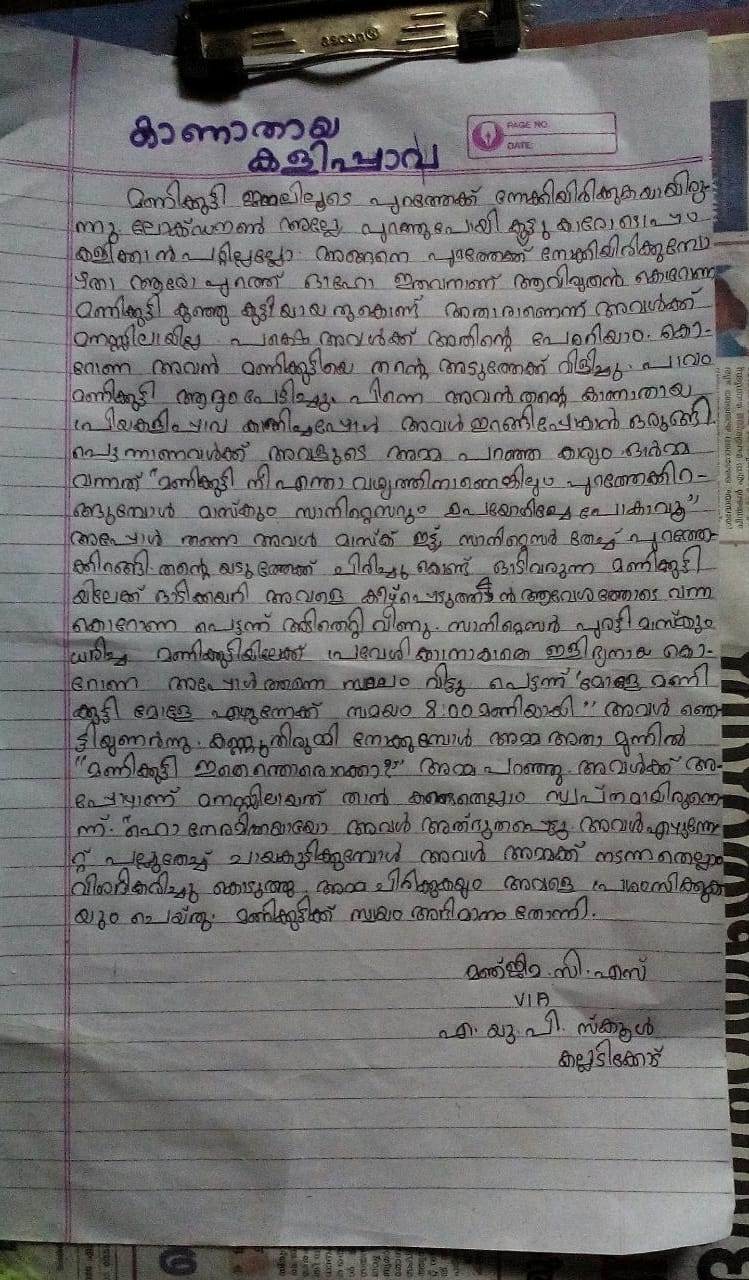 കാണാതായ
കളിപ്പാവ
PAGE NO.
DATE:
മണിക്കുട്ടി ജനലിലൂടെ പുറത്തേക്ക് നോക്കിയിരിക്കുകയായിരു-
ന്നു ലോക്ഡൗൺ അല്ലേ പുറത്തുപോയി കൂട്ടുകാരോടൊപ്പം
കളിക്കാൻ പറ്റില്ലല്ലോ. അങ്ങനെ പുറത്തേക്ക് നോക്കിയിരിക്കുമ്പോ
ഴതാ ആരോ പുറത്ത് ഓഹോ ഇതവനാണ് ആ വിരുതൻ കൊറോണ
മണിക്കുട്ടി കുഞ്ഞു കുട്ടിയായതുകൊണ്ട് അതാരാണെന്ന് അവൾക്ക്
മനസ്സിലായില്ല. പക്ഷെ അവൾക്ക് അതിന്റെ പേരറിയാം. കൊ-
റോണ അവൻ മണിക്കുട്ടിയെ തന്റെ അടുത്തേക്ക് വിളിച്ചു. പാവം
മണിക്കുട്ടി ആദ്യം പേടിച്ചും പിന്നെ അവൻ തന്റെ കാണാതായ
പ്രിയകളിപ്പാവ കാണിച്ചപ്പോൾ അവൾ ഇറങ്ങിപ്പോകാൻ ഒരുങ്ങി.
പെട്ടന്നാണവൾക്ക് അവളുടെ അമ്മ പറഞ്ഞ കാര്യം ഓർമ്മ
വന്നത് "മണിക്കുട്ടി നീ എന്താ വശ്യത്തിനാണെങ്കിലും പുറത്തേക്കിറ-
ങ്ങുമ്പോൾ മാസ്കും സാനിറ്റൈസറും ഉപയോഗിച്ചേ പോകാവൂ"
അപ്പോൾ തന്നെ അവൾ മാസ്ക് ഇട്ടു, സാനിറ്റൈസർ തേച്ച് പുറത്തേ-
ക്കിറങ്ങി. തന്റെയടുത്തേക്ക് ചിരിച്ചു കൊണ്ട് ഓടിവരുന്ന മണിക്കുട്ടി
യിലേക്ക് ഓടിക്കയറി അവളെ കീഴ്പെടുത്താൻ ആവേശത്തോടെ വന്ന
കൊറോണ പെട്ടന്ന് ഞെട്ടിതെറ്റി വീണു. സാനിറ്റൈസർ പുരട്ടി മാസ്കും
ധരിച്ച മണിക്കുട്ടിയിലേക്ക് പ്രവേശിക്കാനാകാതെ ഇളിഭ്യനായ കൊ-
റോണ അപ്പോൾ തന്നെ സ്ഥലം വിട്ടു പെട്ടന്ന് "മോളേ മണി
ക്കുട്ടി മോളേ എഴുന്നേക്ക് സമയം 8:00 മണിയായി" അവൾ ഞെ-
ട്ടിയുണർന്നു. കണ്ണുതിരുമ്മി നോക്കുമ്പോൾ അമ്മ അതാ മുന്നിൽ
"മണിക്കുട്ടി ഇതെന്തൊരൊറക്കാ?" അമ്മ പറഞ്ഞു. അവൾക്ക് അ-
പ്പോഴാണ് മനസ്സിലായത് താൻ കണ്ടതെല്ലാം സ്വപ്നമായിരുന്നെ
ന്ന്. "ഹൊ നേരമിത്രയായോ അവൾ അത്ഭുതപ്പെട്ടു അവൾ എഴുന്നേ
റ്റ് പല്ലുതേച്ച് ചായകുടിക്കുമ്പോൾ അവൾ അമ്മക്ക് നടന്നതെല്ലാം
വിശദീകരിച്ചു കൊടുത്തു. അമ്മ ചിരിക്കുകയും അവളെ പ്രശംസിക്കുക
യും ചെയ്തു. മണിക്കുട്ടിക്ക് സ്വയം അഭിമാനം തോന്നി.
മഞ്ജിമ. സി. എസ്
VI A
എ. യു. പി. സ്കൂൾ
കല്ലടിക്കോട്